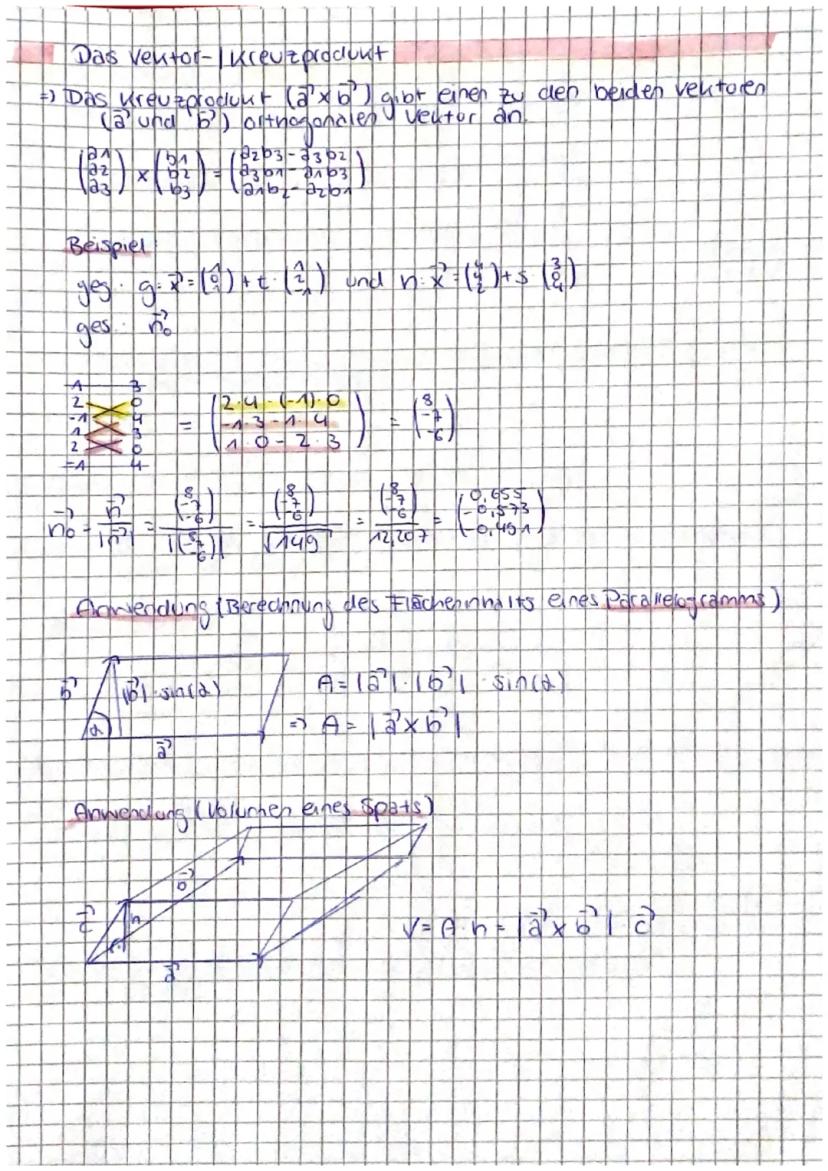 Das Vektor-/Kreuzprodukt
=> Das Kreuzprodukt (a⃗ x b⃗) gibt einen zu den beiden Vektoren
(a⃗ und b⃗) orthogonalen Vektor an.
(a1 a2 a3) x (b1 b2 b3) = (a2b3 - a3b2 a3b1 - a1b3 a1b2 - a2b1)
Beispiel
geg.: g: x⃗ = + t · (1 2 -1) und h: x⃗ = (4 4 2) + s (3 0 4)
ges.: n⃗0
1 3
2 0
-1 4
1 3
2 0
-1 4
= (2·4 - (-1)·0 -1·3 - 1·4 1·0 - 2·3) = (8 -7 -6)
n⃗0 = n⃗/|n⃗| = (8 -7 -6)/|(8 -7 -6)| = (8 -7 -6)/√149 = (8 -7 -6)/12,207 = (0,655 -0,573 -0,491)
Anwendung (Berechnung des Flächeninhalts eines Parallelogramms)
b⃗ |b⃗| · sin(α) A = |a⃗| · |b⃗| · sin(α)
α => A = |a⃗ x b⃗|
a⃗
Anwendung (Volumen eines Spats)
b⃗
c⃗ h V = A · h = |a⃗ x b⃗| · c⃗
a⃗